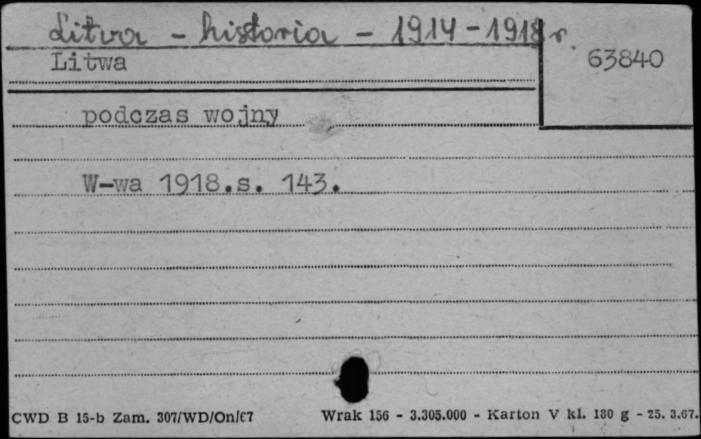 Litwa - historia - 1914-1918 r.
Litwa
63840
podczas wojny
W-wa 1918.s. 143.
CWD B 15-b Zam. 307/WD/On/67 Wrak 156 - 3.305.000 - Karton V kl. 180 g - 25. 3.67.